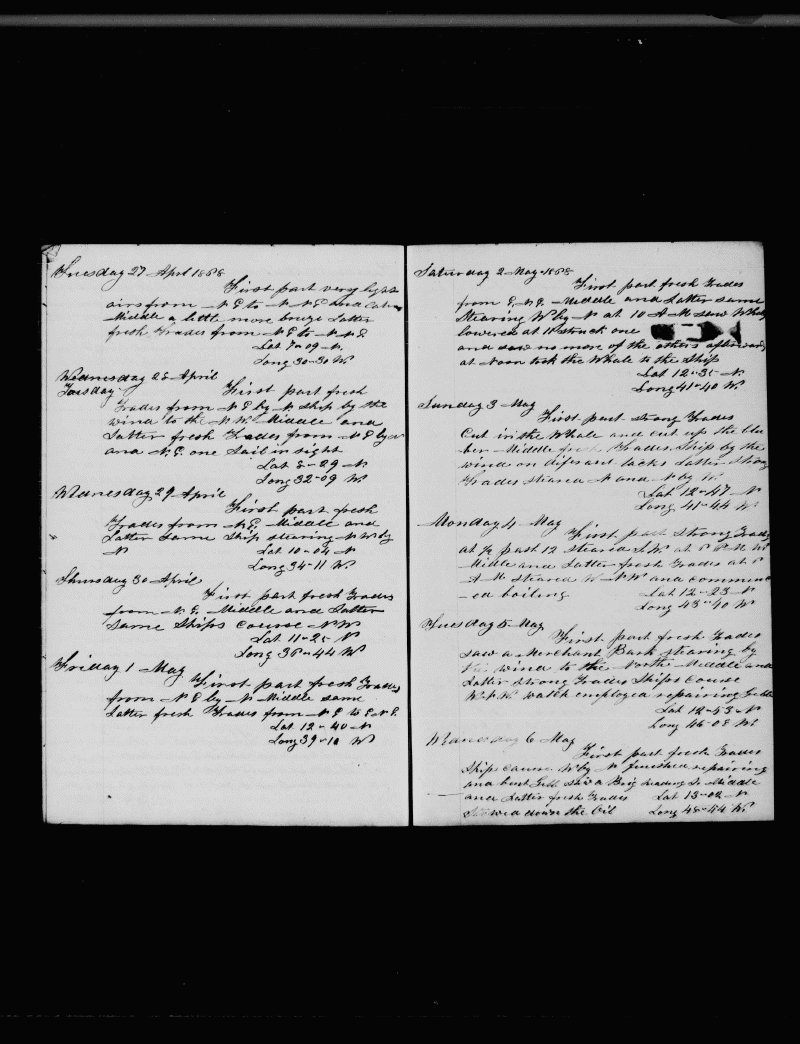 Tuesday 27 April 1858
First part very light
airs from N E to N N E and Calm
Middle a little more breeze Latter
fresh Trades from N E to N N E
Lat 7-09 N
Long 30-30 W
Wednesday 28 April
Tuesday
First part fresh
Trades from N E by N Ship by the
wind to the N W Middle and
Latter fresh Trades from N E by N
and N E one Sail in sight
Lat 8-29 N
Long 32-09 W
Wednesday 29 April
First part fresh
Trades from N E Middle and
Latter Same Ship stearing N W by
N
Lat 10-04 N
Long 34-11 W
Thursday 30 April
First part fresh Trades
from N E Middle and Latter
Same Ships Course N W
Lat 11-25 N
Long 36-44 W
Friday 1 May
First part fresh Trades
from N E by N Middle same
Latter fresh Trades from N E to E N E
Lat 12-40 N
Long 39-10 W
Saturday 2 May 1858
First part fresh Trades
from E N E Middle and Latter same
Stearing W by N at 10 A M saw Whales
lowered at 11 struck one
and saw no more of the others afterwards
at Noon took the Whale to the Ship
Lat 12-35 N
Long 41-40 W
Sunday 3 May
First part strong Trades
Cut in the Whale and cut up the blu
ber Middle fresh Trades Ship by the
wind on diferant tacks Latter strong
Trades steared N and N by W
Lat 12-47 N
Long 41-44 W
Monday 4 May
First part Strong Trades
at ½ past 12 steared S W at P M W
Midle and Latter fresh Trades at
A M steared W N W and commenc
ed boiling
Lat 12-23 N
Long 43-40 W
Tuesday 5 May
First part fresh Trades
saw a Merchant Bark stearing by
the wind to the North Middle and
Latter strong Trades Ships Course
W N W watch employed repairing
Lat 12-43 N
Long 46-08 W
Wednesday 6 May
First part fresh Trades
Ships Course W by N finished repairing
and bent saw a Brig heading S Middle
and Latter fresh Trades
Lat 13-02 N
Stowed down the Oil
Long 48-54 W